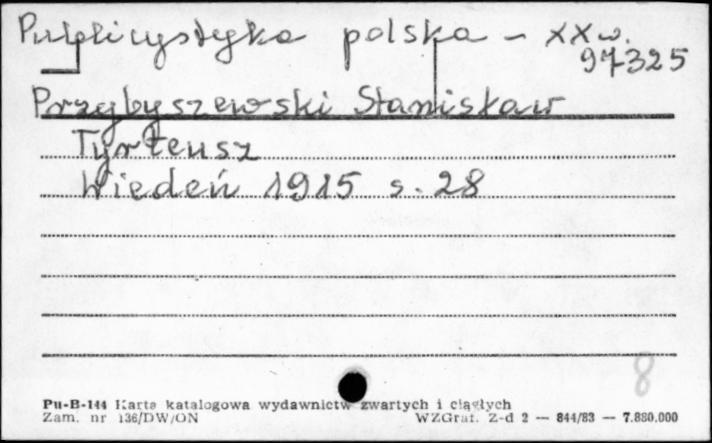 Publicystyka polska - XX w.
97325
Przybyszewski Stanisław
Tyrteusz
Wiedeń 1915 s. 28
8
Pu-B-144 Karta katalogowa wydawnictw zwartych i ciągłych
Zam. nr 136/DW/ON WZGraf. Z-d 2 — 844/83 — 7.880.000